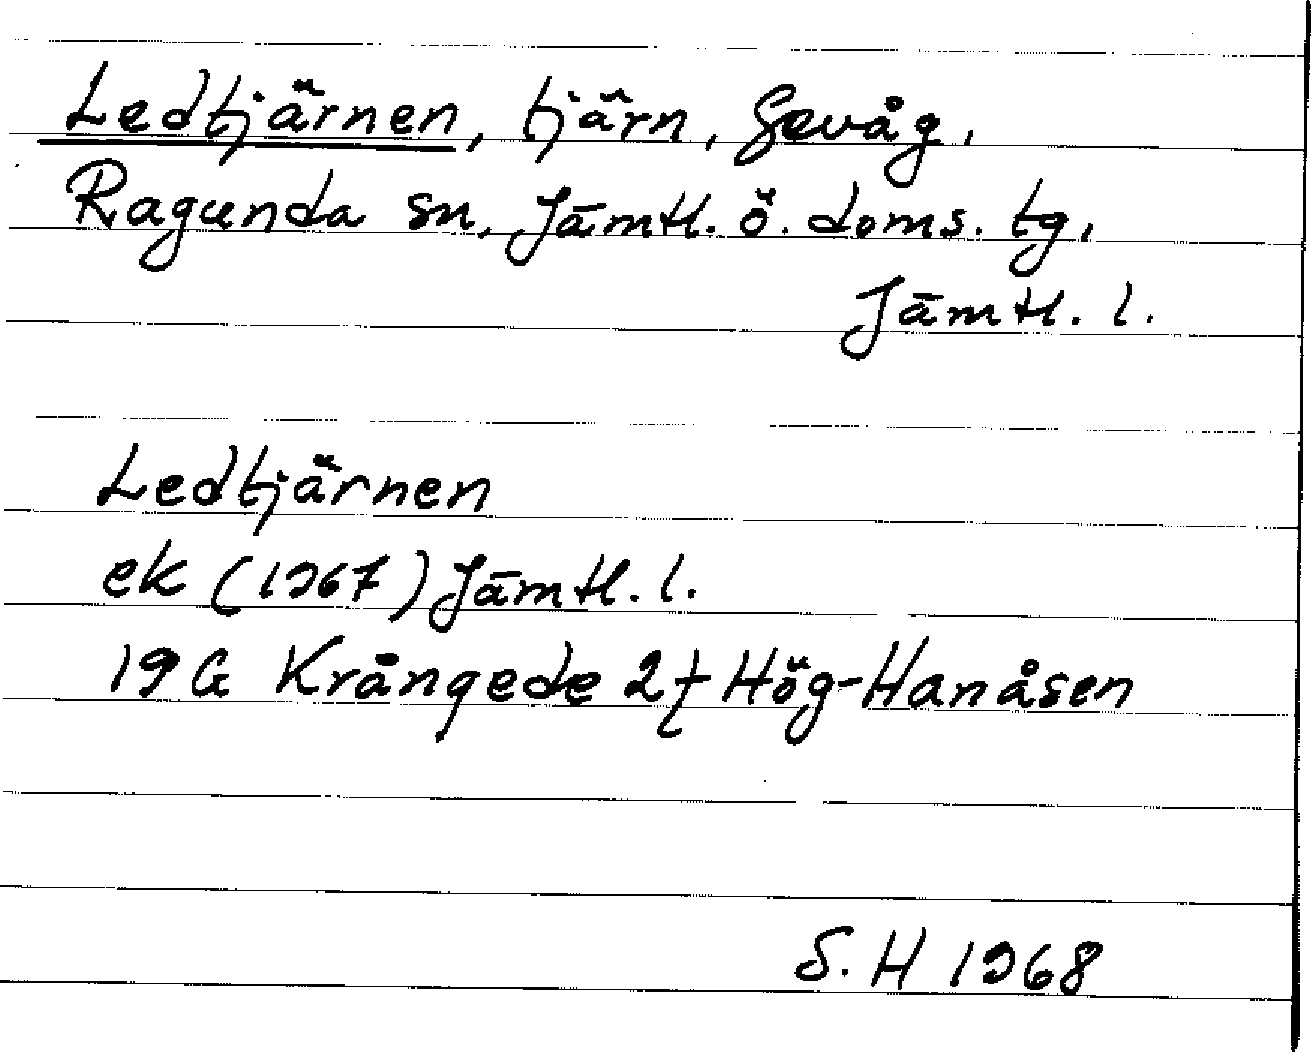 Ledtjärnen, tjärn, Gevåg,
Ragunda sn, Jämtl. ö. doms. tg,
Jämtl. l.
Ledtjärnen
ek (1967) Jämtl. l.
19G Krångede 2f Hög-Hanåsen
S. H 1968